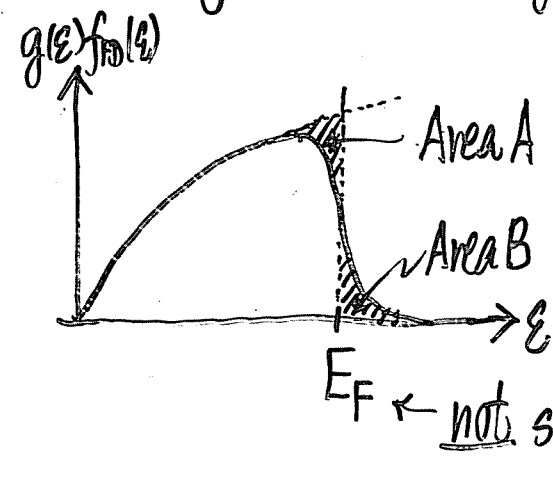 g(ε)f_FD(ε)
Area A
Area B
ε
E_F ← not s